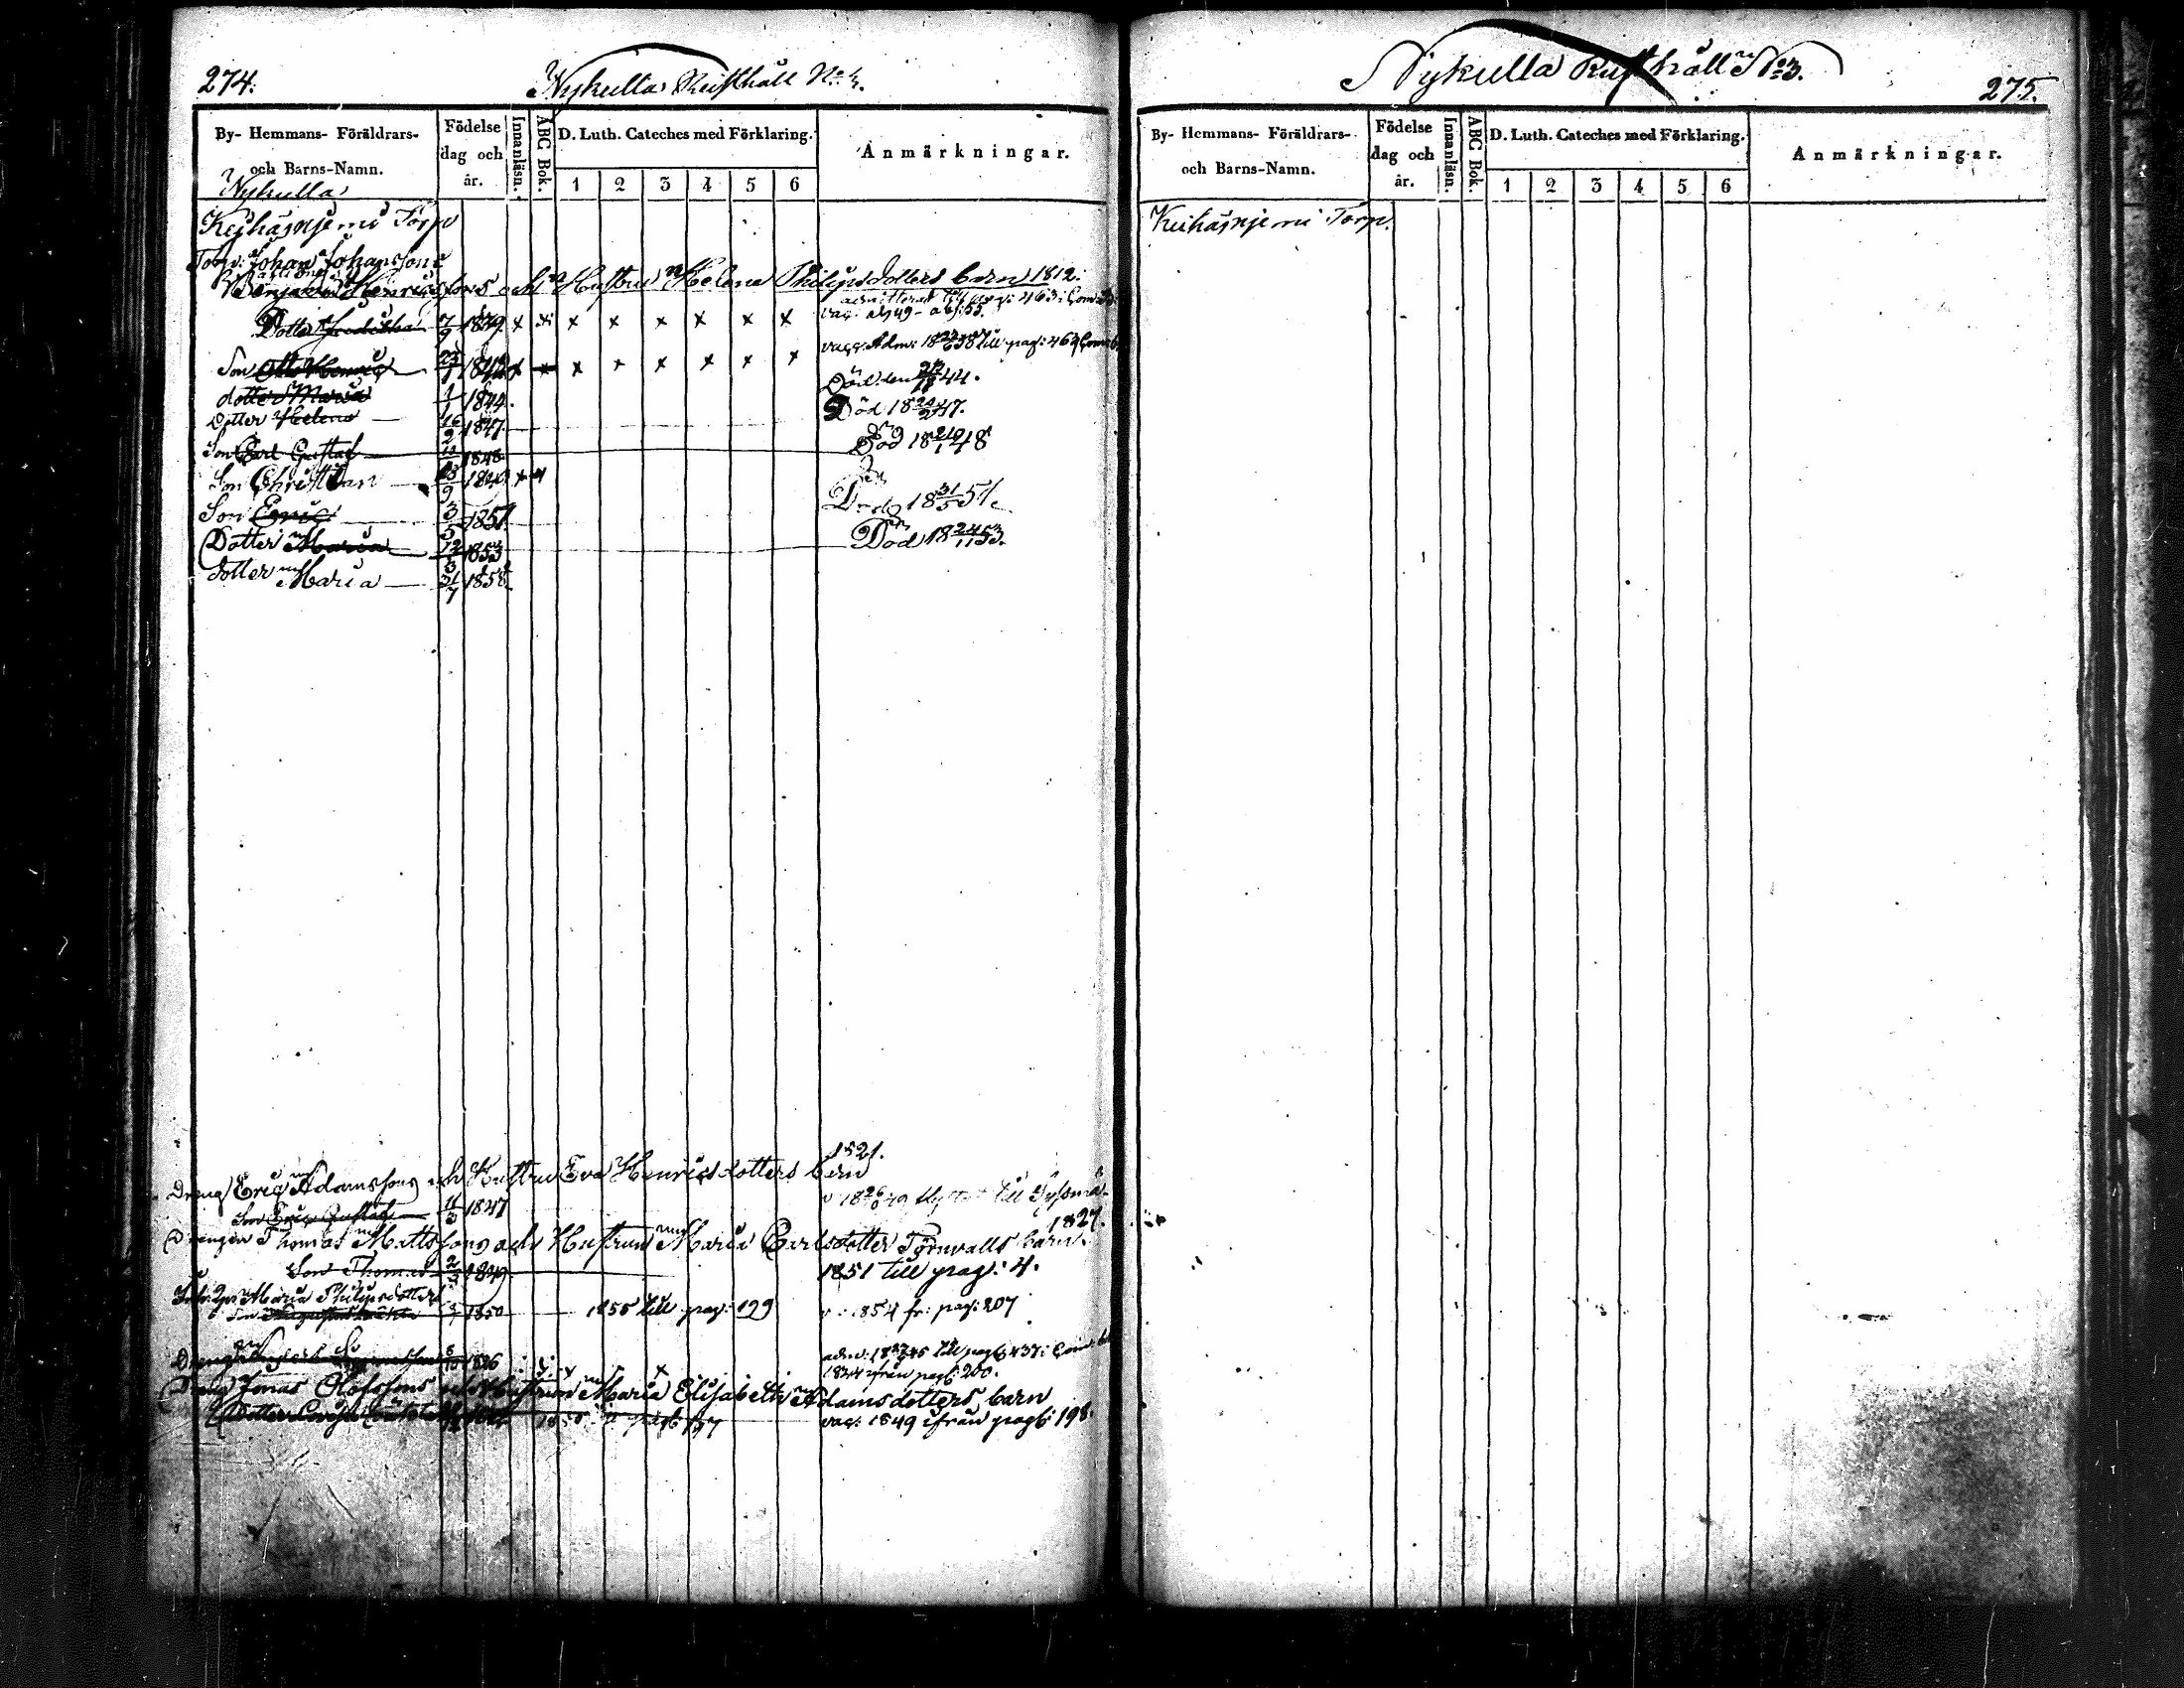 274.
Nykulla Rusthåll No 4.
By- Hemmans- Föräldrars-
och Barns-Namn.
Födelse
dag och
år.
Innanläsn.
ABC Bok.
D. Luth. Cateches med Förklaring.
1 2 3 4 5 6
Anmärkningar.
Nykulla
Keihäsnjemi Torp
Torp: Johan Johanssons
Benjamin Henricssons och Hustru Helena Philipsdotters barn 1812.
admitterad till pag: 463 i
Dotter 7/9 1839 x x x x x x x
vac: 49
Son Otto Henric 23/1 1842 x x x x x x x x
Adm: 1858 till pag: 462
dotter Maria 1844.
Död den 44.
Dotter Helena 16/2 1847
Död 18 47.
Son Carl Gustaf 1848
Död 18 48
Son Christian 9 1849 x x
Son Eric 3/5 1851.
Död 18 31/5 51.
Dotter Maria 12/3 1853
Död 18 24/11 53.
dotter Maria 31/7 1858
1821.
Dreng Eric Adamssons och Hustru Eva Henricsdotters barn
Son Eric Gustaf 11/3 1847
49 till Sysmä
1827.
Drengen Thomas Mattssons och Hustrun Maria Carlsdotter Törnvalls barn.
Son Thomas 2/3 1849
1851 till pag: 4.
Maria Philipsdotters
Son 1850 1855 till pag: 129
1854 fr: pag: 207
Dreng 1826
45 till pag: 437 i
1844 ifrån pag: 200.
Dreng Jonas Olofssons och Hustrun Maria Elisabeth Adamsdotters barn
Dotter
vac: 1849 ifrån pag: 198.
Nykulla Rusthåll No 3.
275.
By- Hemmans- Föräldrars-
och Barns-Namn.
Födelse
dag och
år.
Innanläsn.
ABC Bok.
D. Luth. Cateches med Förklaring.
1 2 3 4 5 6
Anmärkningar.
Keihäsnjemi Torp.